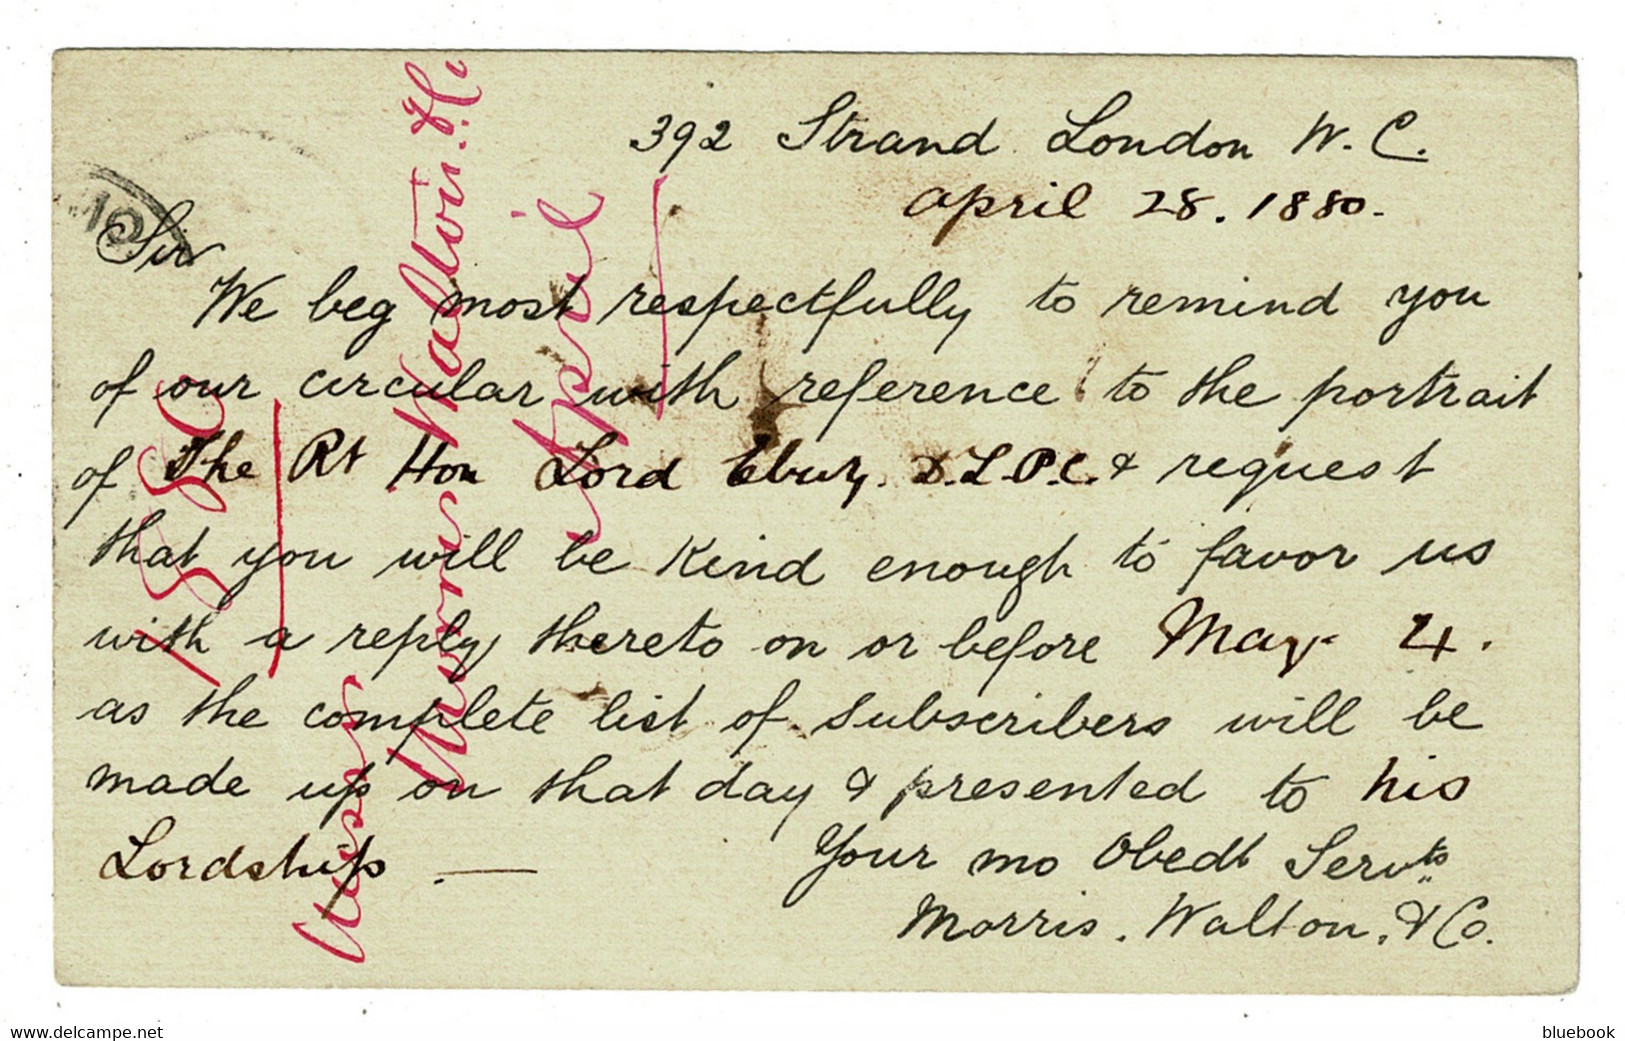 392 Strand London W. C.
April 28. 1880.
Sir
We beg most respectfully to remind you
of our circular with reference to the portrait
of The Rt Hon Lord Ebury. D.L.P.C. & request
that you will be kind enough to favor us
with a reply thereto on or before May 4.
as the complete list of subscribers will be
made up on that day & presented to his
Lordship —
Your mo Obedt Servts
Morris. Walton. & Co.
1880
Morris Walton
April
10
www.delcampe.net
bluebook